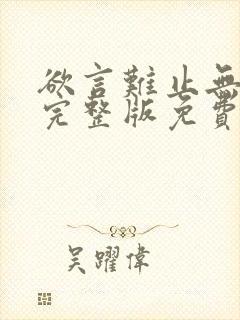 欲言難止無
完整版免費
吳躍偉